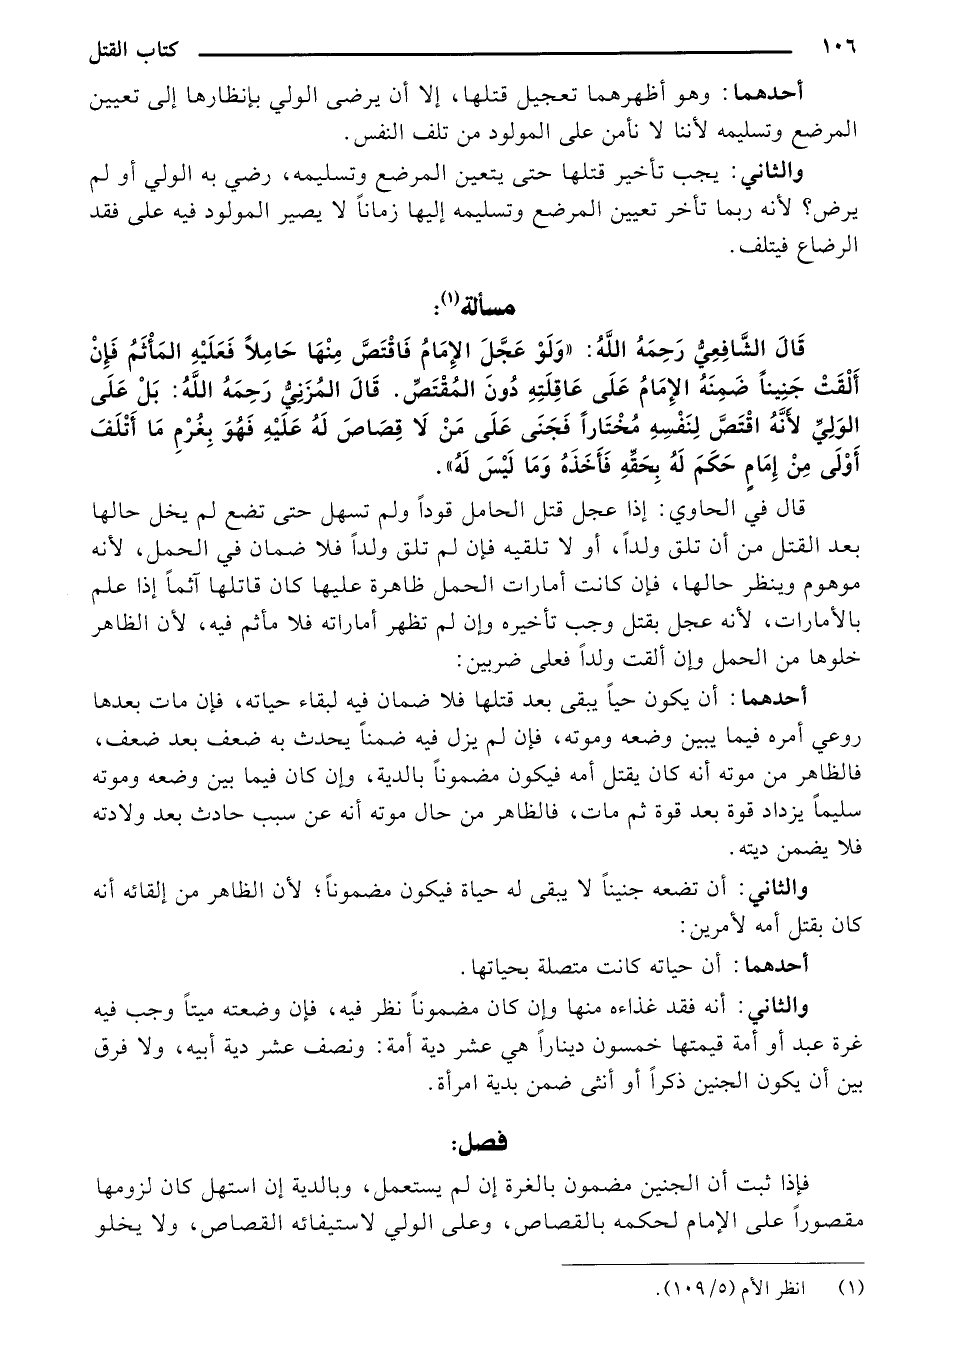 ١٠٦ كتاب القتل
أحدهما: وهو أظهرهما تعجيل قتلها، إلا أن يرضى الولي بإنظارها إلى تعيين
المرضع وتسليمه لأننا لا نأمن على المولود من تلف النفس.
والثاني: يجب تأخير قتلها حتى يتعين المرضع وتسليمه، رضي به الولي أو لم
يرض؟ لأنه ربما تأخر تعيين المرضع وتسليمه إليها زماناً لا يصير المولود فيه على فقد
الرضاع فيتلف.
مسألة(١):
قَالَ الشَّافِعِيُّ رَحِمَهُ اللَّهُ: «وَلَوْ عَجَّلَ الإِمَامُ فَاقْتَصَّ مِنْهَا حَامِلاً فَعَلَيْهِ المَأْثَمُ فَإِنْ
أَلْقَتْ جَنِيناً ضَمِنَهُ الإِمَامُ عَلَى عَاقِلَتِهِ دُونَ المُقْتَصِّ. قَالَ المُزَنِيُّ رَحِمَهُ اللَّهُ: بَلْ عَلَى
الوَلِيِّ لأَنَّهُ اقْتَصَّ لِنَفْسِهِ مُخْتَاراً فَجَنَى عَلَى مَنْ لَا قِصَاصَ لَهُ عَلَيْهِ فَهُوَ بِغُرْمِ مَا أَتْلَفَ
أَوْلَى مِنْ إِمَامٍ حَكَمَ لَهُ بِحَقِّهِ فَأَخَذَهُ وَمَا لَيْسَ لَهُ».
قال في الحاوي: إذا عجل قتل الحامل قوداً ولم تسهل حتى تضع لم يخل حالها
بعد القتل من أن تلق ولداً، أو لا تلقيه فإن لم تلق ولداً فلا ضمان في الحمل، لأنه
موهوم وينظر حالها، فإن كانت أمارات الحمل ظاهرة عليها كان قاتلها آثماً إذا علم
بالأمارات، لأنه عجل بقتل وجب تأخيره وإن لم تظهر أماراته فلا مأثم فيه، لأن الظاهر
خلوها من الحمل وإن ألقت ولداً فعلى ضربين:
أحدهما: أن يكون حياً يبقى بعد قتلها فلا ضمان فيه لبقاء حياته، فإن مات بعدها
روعي أمره فيما يبين وضعه وموته، فإن لم يزل فيه ضمناً يحدث به ضعف بعد ضعف،
فالظاهر من موته أنه كان يقتل أمه فيكون مضموناً بالدية، وإن كان فيما بين وضعه وموته
سليماً يزداد قوة بعد قوة ثم مات، فالظاهر من حال موته أنه عن سبب حادث بعد ولادته
فلا يضمن ديته.
والثاني: أن تضعه جنيناً لا يبقى له حياة فيكون مضموناً؛ لأن الظاهر من إلقائه أنه
كان بقتل أمه لأمرين:
أحدهما: أن حياته كانت متصلة بحياتها.
والثاني: أنه فقد غذاءه منها وإن كان مضموناً نظر فيه، فإن وضعته ميتاً وجب فيه
غرة عبد أو أمة قيمتها خمسون ديناراً هي عشر دية أمة: ونصف عشر دية أبيه، ولا فرق
بين أن يكون الجنين ذكراً أو أنثى ضمن بدية امرأة.
فصل:
فإذا ثبت أن الجنين مضمون بالغرة إن لم يستعمل، وبالدية إن استهل كان لزومها
مقصوراً على الإمام لحكمه بالقصاص، وعلى الولي لاستيفائه القصاص، ولا يخلو
(١) انظر الأم (١٠٩/٥).